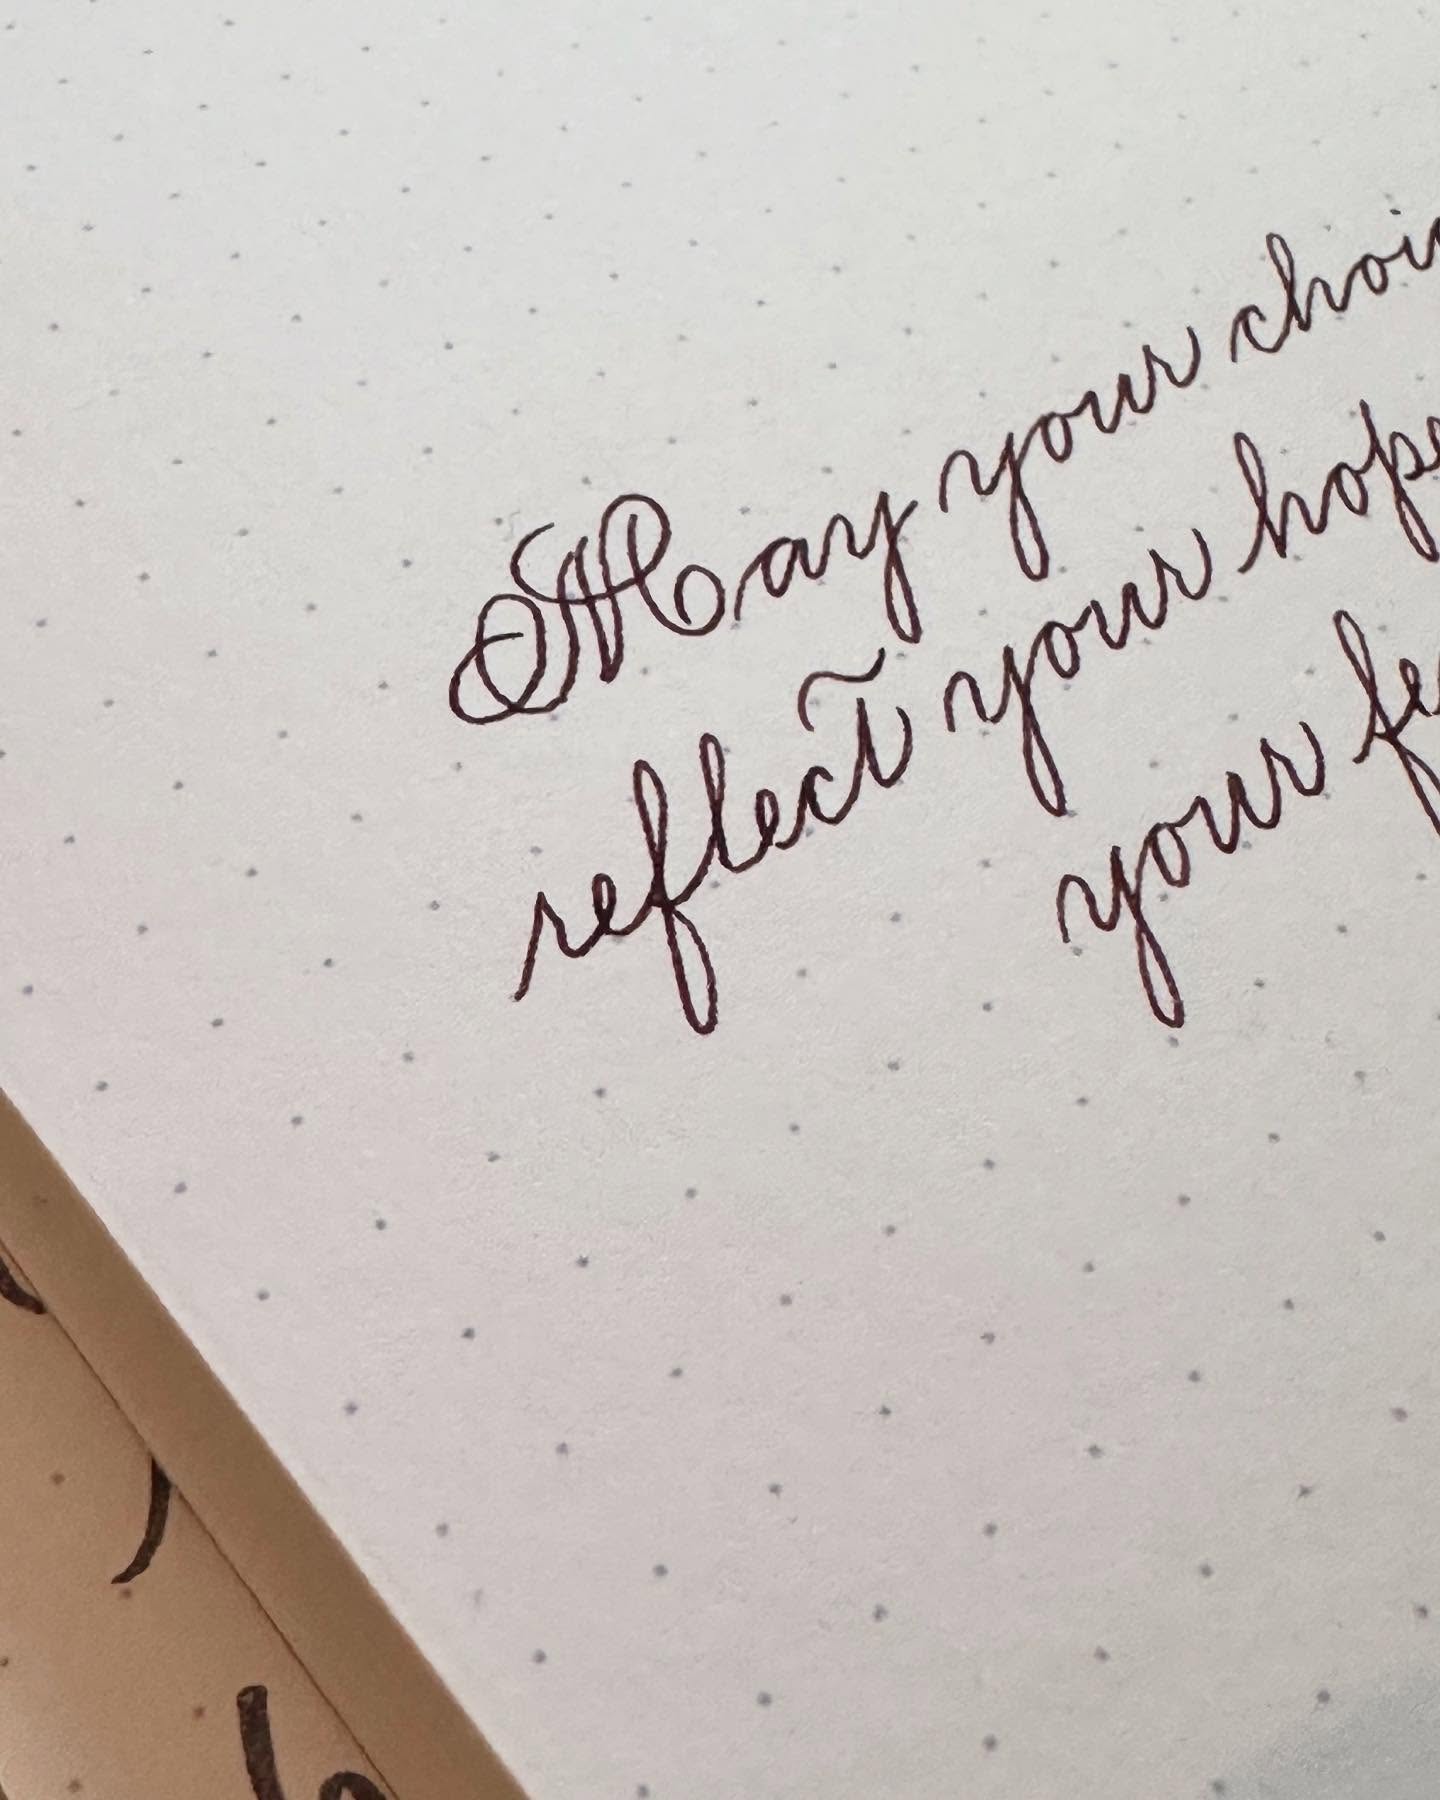 May your choi
reflect your hope
your fe